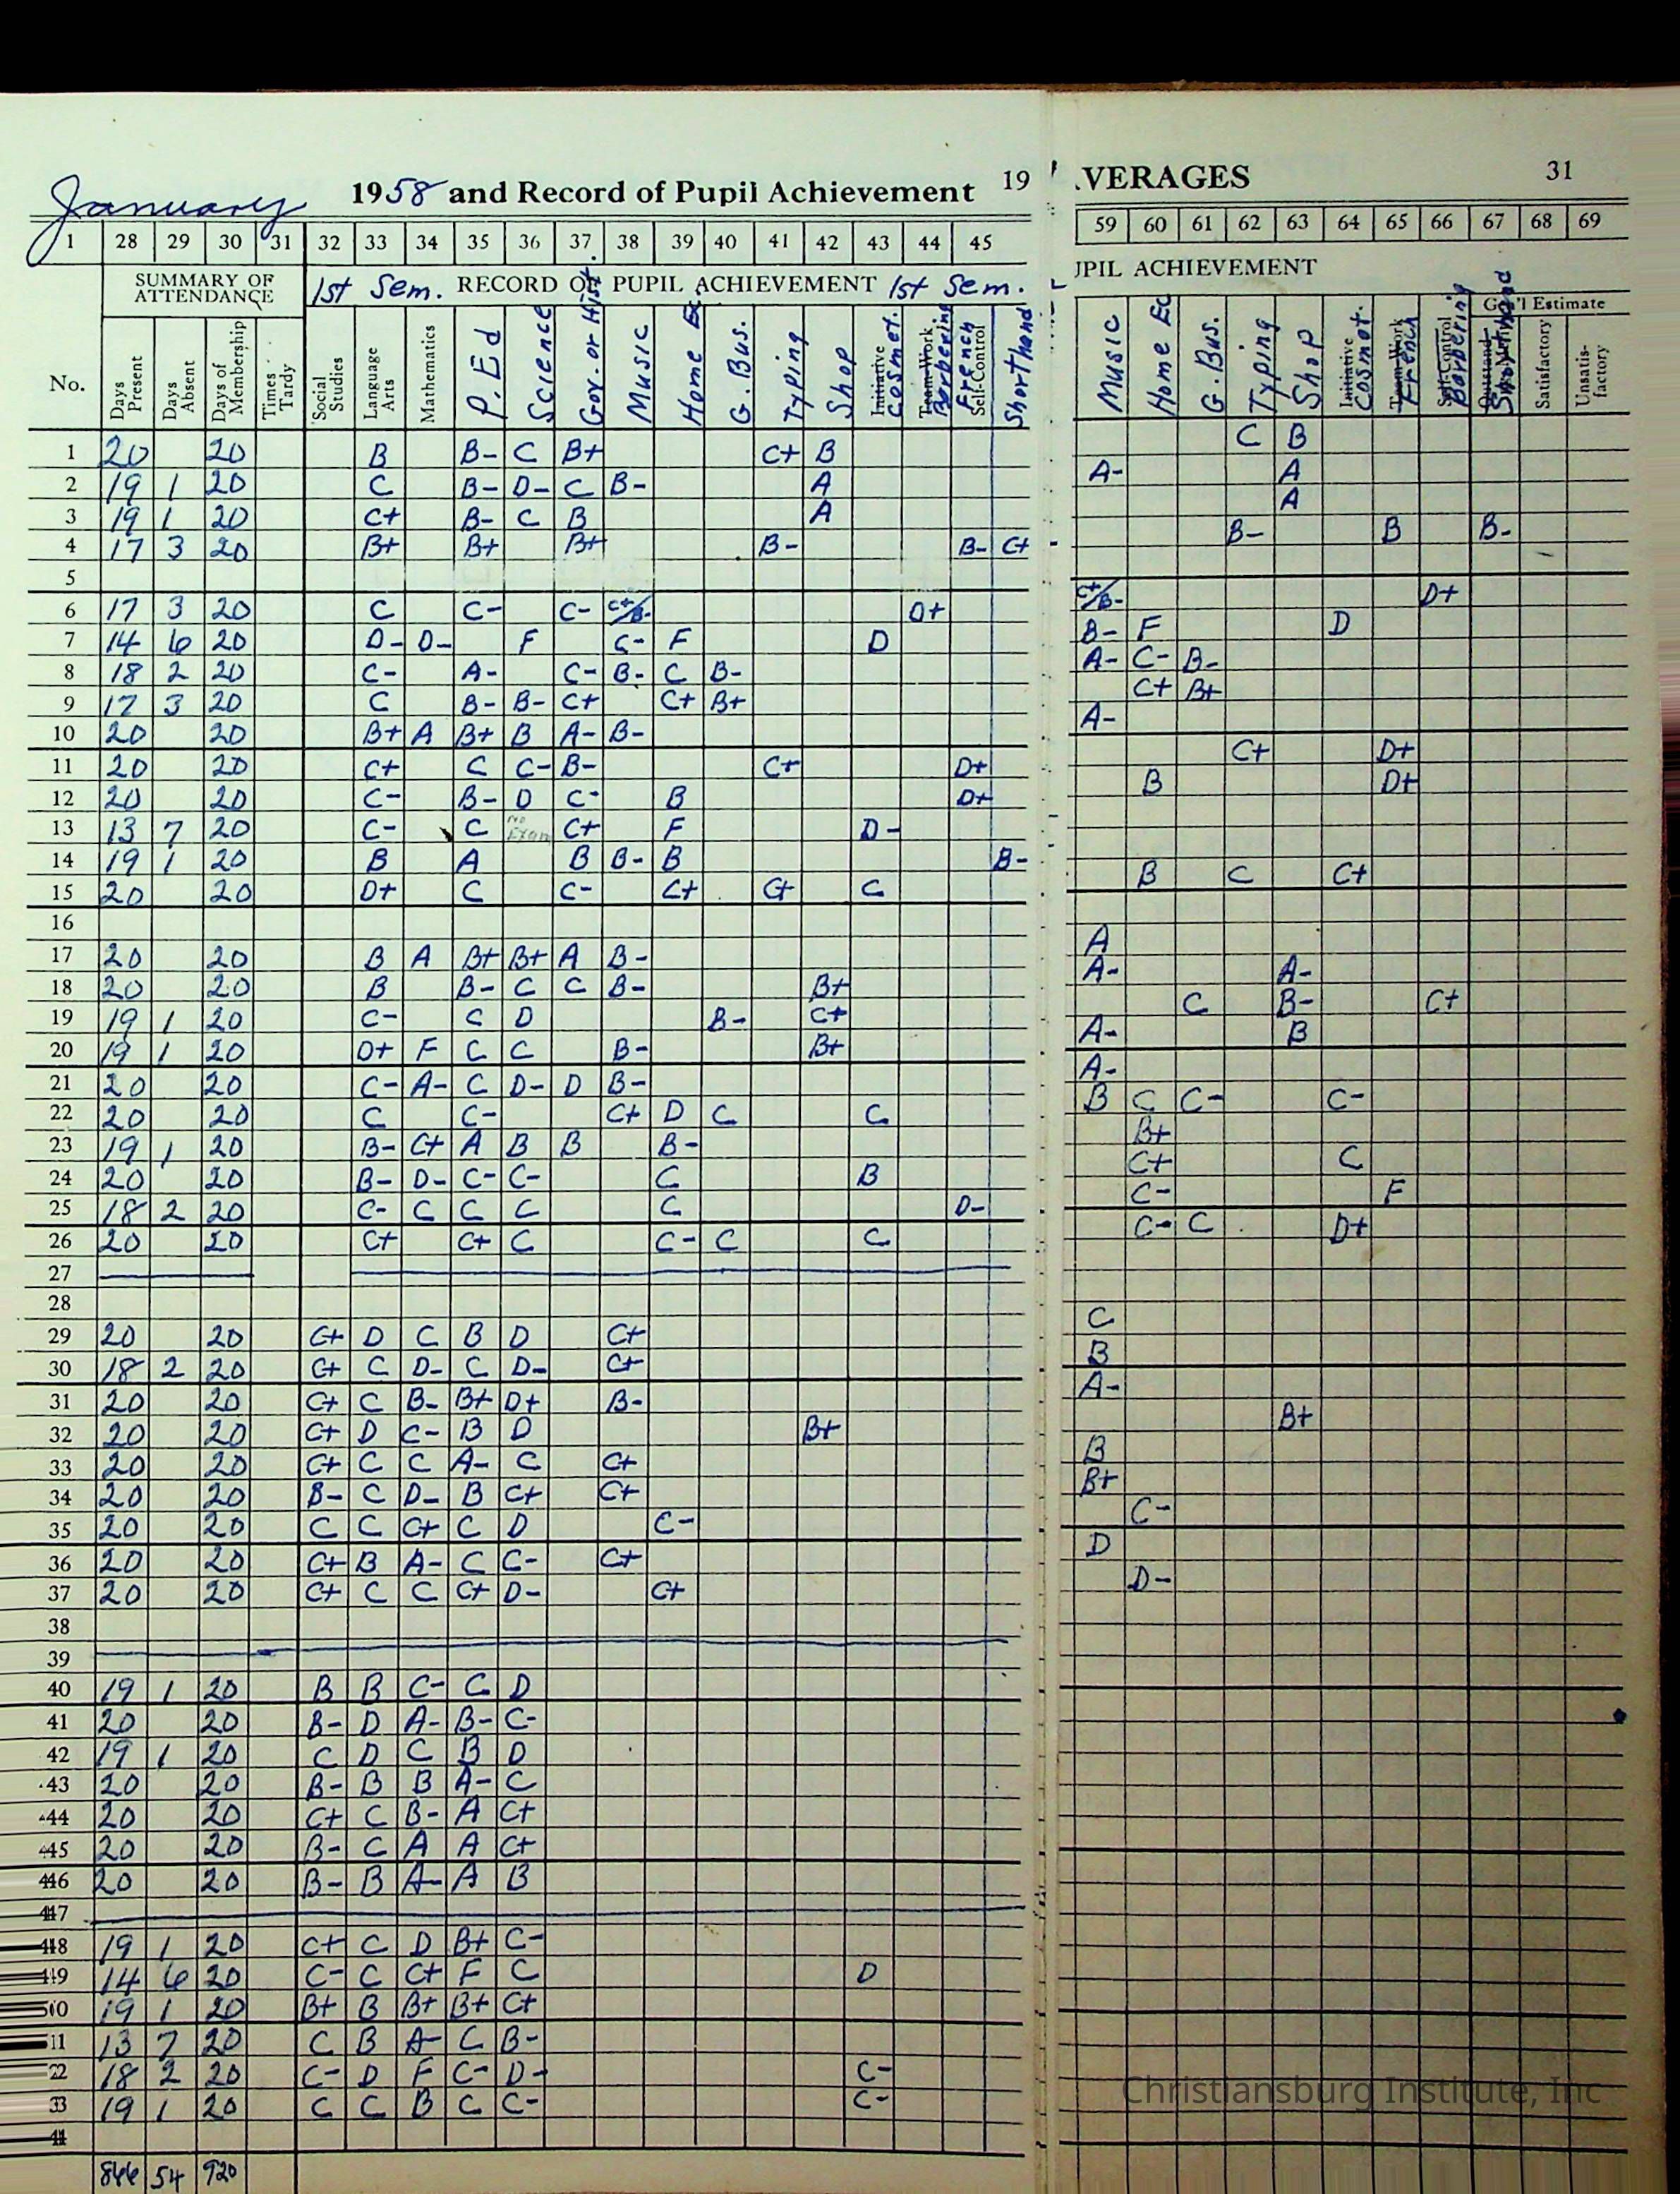 January 1958 and Record of Pupil Achievement 19
1 28 29 30 31 32 33 34 35 36 37 38 39 40 41 42 43 44 45
SUMMARY OF ATTENDANCE 1st Sem. RECORD OF PUPIL ACHIEVEMENT 1st Sem.
No. Days Present Days Absent Days of Membership Times Tardy Social Studies Language Arts Mathematics P. Ed Science Gov. or Hist. Music Home Ec G. Bus. Typing Shop Initiative Cosmet. Team-Work Barbering French Self-Control Shorthand
1 20 20 B B- C B+ C+ B
2 19 1 20 C B- D- C B- A
3 19 1 20 C+ B- C B A
4 17 3 20 B+ B+ B+ B- B- C+
5
6 17 3 20 C C- C- C+/B- D+
7 14 6 20 D- D- F C- F D
8 18 2 20 C- A- C- B- C B-
9 17 3 20 C B- B- C+ C+ B+
10 20 20 B+ A B+ B A- B-
11 20 20 C+ C C- B- C+ D+
12 20 20 C- B- D C- B D+
13 13 7 20 C- C No Exam C+ F D-
14 19 1 20 B A B B- B B-
15 20 20 D+ C C- C+ C+ C
16
17 20 20 B A B+ B+ A B-
18 20 20 B B- C C B- B+
19 19 1 20 C- C D B- C+
20 19 1 20 D+ F C C B- B+
21 20 20 C- A- C D- D B-
22 20 20 C C- C+ D C C
23 19 1 20 B- C+ A B B B-
24 20 20 B- D- C- C- C B
25 18 2 20 C- C C C C D-
26 20 20 C+ C+ C C- C C
27
28
29 20 20 C+ D C B D C+
30 18 2 20 C+ C D- C D- C+
31 20 20 C+ C B- B+ D+ B-
32 20 20 C+ D C- B D B+
33 20 20 C+ C C A- C C+
34 20 20 B- C D- B C+ C+
35 20 20 C C C+ C D C-
36 20 20 C+ B A- C C- C+
37 20 20 C+ C C C+ D- C+
38
39
40 19 1 20 B B C- C D
41 20 20 B- D A- B- C-
42 19 1 20 C D C B D
43 20 20 B- B B A- C
44 20 20 C+ C B- A C+
45 20 20 B- C A A C+
46 20 20 B- B A- A B
47
48 19 1 20 C+ C D B+ C-
49 14 6 20 C- C C+ F C D
50 19 1 20 B+ B B+ B+ C+
1 13 7 20 C B A- C B-
2 18 2 20 C- D F C- D- C-
3 19 1 20 C C B C C- C-
4
866 54 920
VERAGES 31
59 60 61 62 63 64 65 66 67 68 69
UPIL ACHIEVEMENT
Gen'l Estimate
Music Home Ec G. Bus. Typing Shop Initiative Cosmot. Team-Work French Self-Control Barbering Shorthand Satisfactory Unsatis-factory
C B
A- A
A
B- B B-
C+/B- D+
B- F D
A- C- B-
C+ B+
A-
C+ D+
B D+
B C C+
A
A- A-
C B- C+
A- B
A-
B C C- C-
B+
C+ C
C- F
C- C D+
C
B
A-
B+
B
B+
C-
D
D-
Christiansburg Institute, Inc